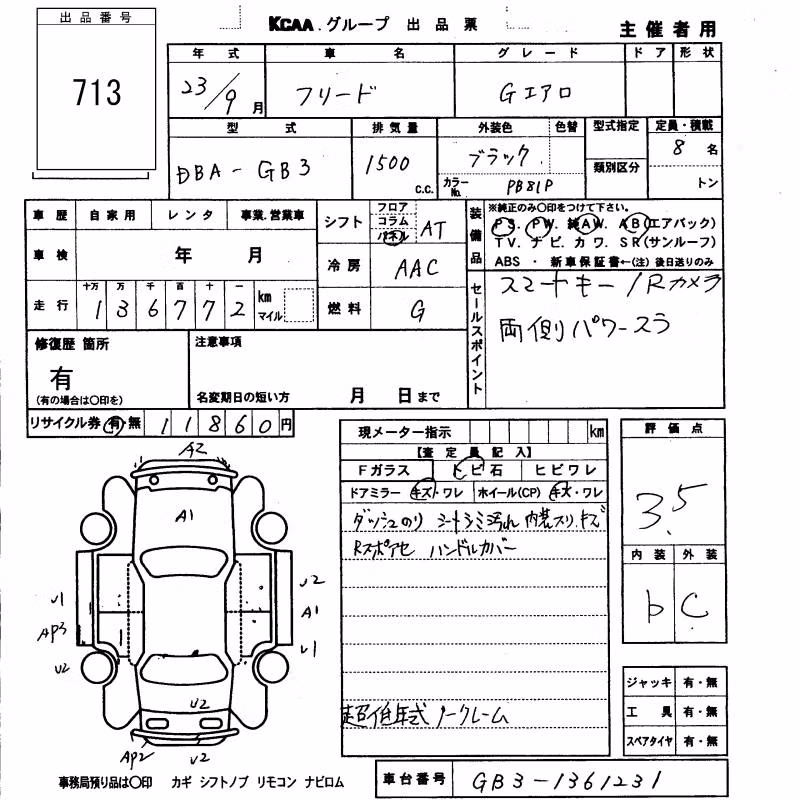 出品番号
713
KCAA グループ 出品票
主催者用
年式 車名 グレード ドア 形状
23/9月 フリード Gエアロ
型式 排気量 外装色 色替 型式指定 定員・積載
DBA-GB3 1500 c.c. ブラック 8名
カラーNo. PB81P 類別区分 トン
車歴 自家用 レンタ 事業.営業車
シフト フロア コラム パネル AT
装備品 ※純正のみ〇印をつけて下さい。
PS. PW. 純AW. AB(エアバック)
TV. ナビ. カワ. SR(サンルーフ)
ABS ・ 新車保証書←(注) 後日送りのみ
車検 年 月
冷房 AAC
走行 十万 万 千 百 十 一
136772 km マイル
燃料 G
セールスポイント
スマートキー/Rカメラ
両側パワースラ
修復歴 箇所
有
(有の場合は〇印を)
注意事項
名変期日の短い方 月 日まで
リサイクル券 有・無 11860円
現メーター指示 km
【査定員記入】
Fガラス トビ石 ヒビワレ
ドアミラー キズ・ワレ ホイール(CP) キズ・ワレ
ダッシュのり シートシミ汚れ 内装スリ.キズ
Rスポアセ ハンドルカバー
超低年式 ノークレーム
評価点
3.5
内装 外装
b C
ジャッキ 有・無
工具 有・無
スペアタイヤ 有・無
A2
A1
U1
AP3
U2
U2
A1
U1
U2
AP2
U2
事務局預り品は〇印 カギ シフトノブ リモコン ナビロム
車台番号 GB3-1361231